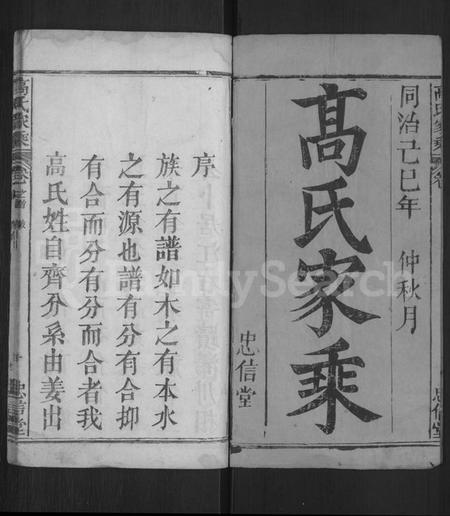 同治己巳年 仲秋月
高氏家乘
忠信堂
高氏家乘
忠信堂
序
族之有譜如木之有本水
之有源也譜有分有合抑
有合而分有分而合者我
高氏姓自齊分系由姜出
高氏家乘
忠信堂
FamilySearch